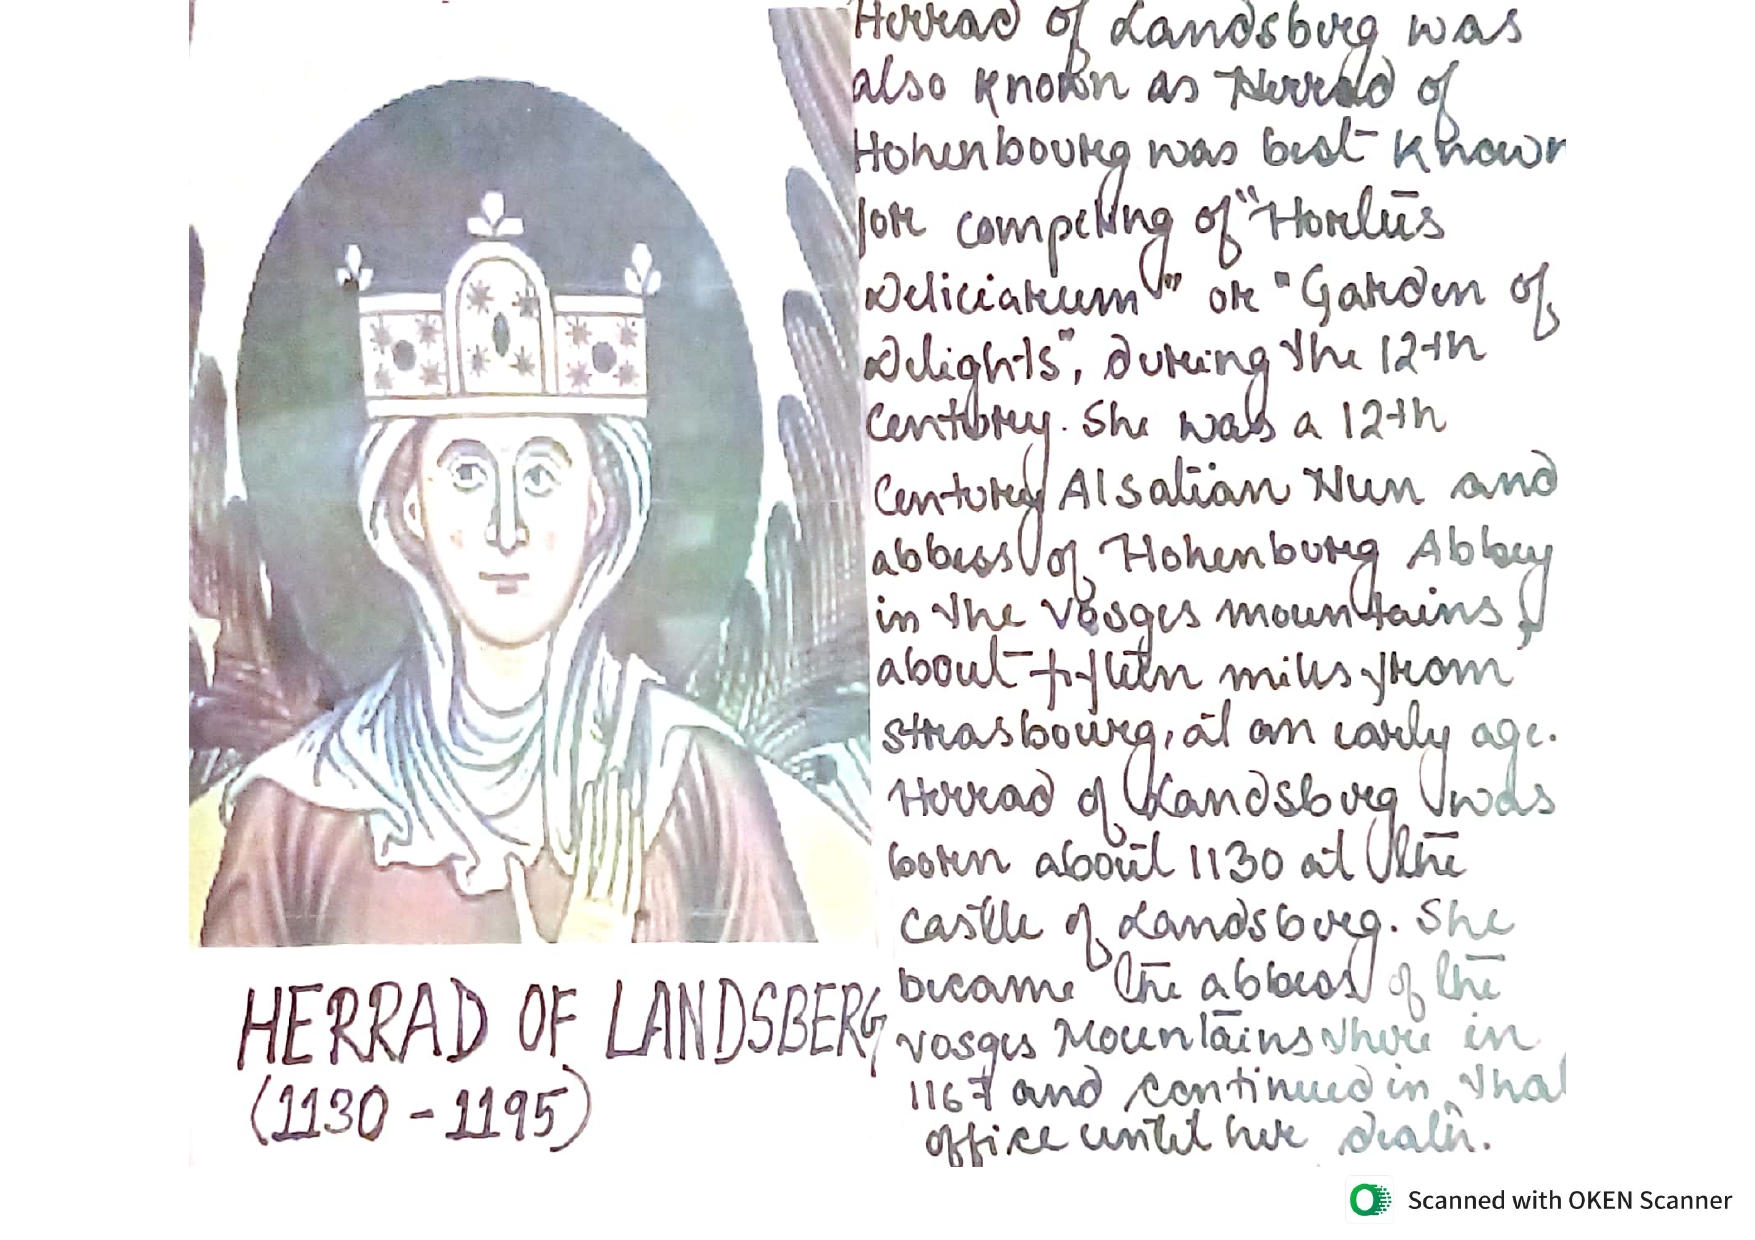 Herrad of Landsberg was
also known as Herrad of
Hohenbourg was best known
for compeling of "Hortus
Deliciarum" or "Garden of
Delights", during the 12th
Century. She was a 12th
Century Alsatian Nun and
abbess of Hohenburg Abbey
in the Vosges mountains,
about fifteen miles from
strasbourg, at an early age.
Herrad of Landsberg was
born about 1130 at the
castle of Landsberg. She
became the abbess of the
Vosges Mountains there in
1167 and continued in that
office until her death.
HERRAD OF LANDSBERG
(1130 - 1195)
Scanned with OKEN Scanner